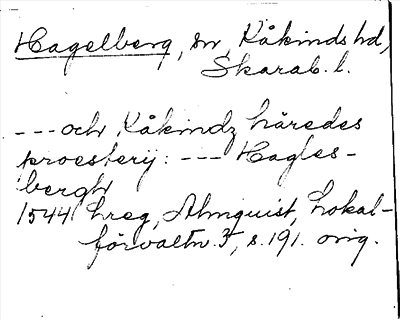 Hagelberg, sn, Kåkinds hd,
Skarab. l.
--- och Kåkindz häredes
proesterij: --- Hagles-
bergh
1544 hreg, Almquist, Lokal-
förvaltn. 3, s. 191. orig.